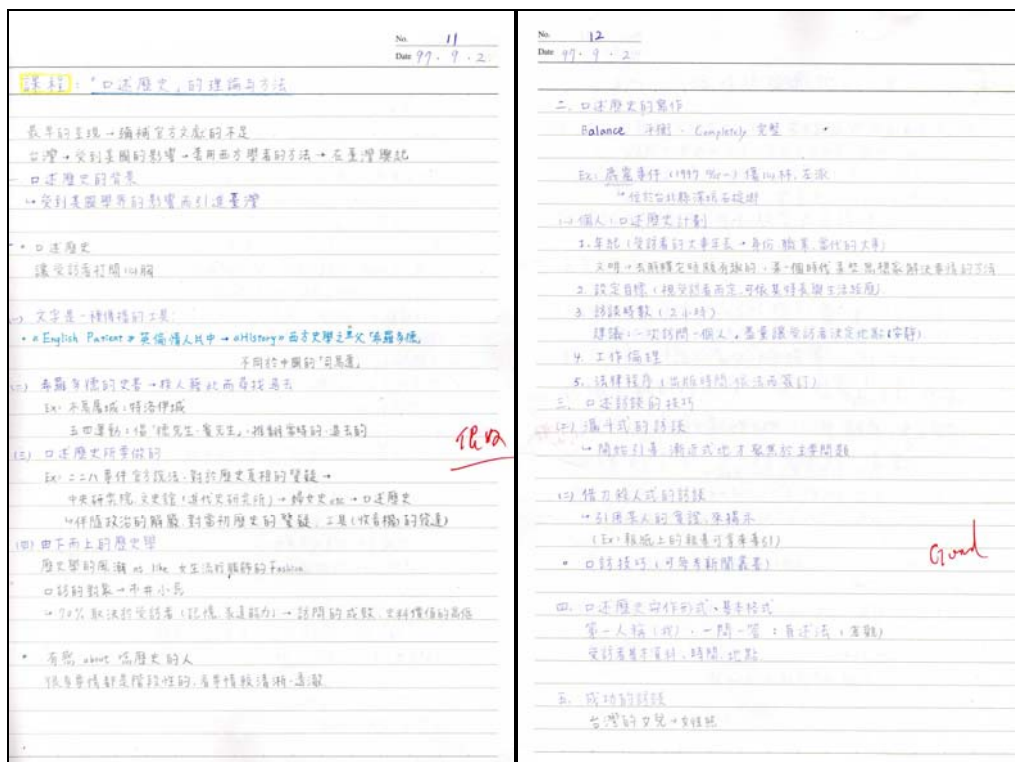 No. 11
Date 97.9.2
課程:「口述歷史」的理論与方法
最早的呈現→補官方文獻的不足
台灣→受到美國的影響→套用西方學者的方法→在臺灣興起
口述歷史的背景
↳受到美國學界的影響而引進臺灣
• 口述歷史
讓受訪者打開心胸
(一) 文字是一種傳播的工具:
•《English Patient》英倫情人片中→《History》西方史學之父「希羅多德」
不同於中國的「司馬遷」
(二) 希羅多德的史書→後人藉此而尋找過去
Ex: 木馬屠城:特洛伊城
五四運動:倡「德先生、賽先生」,推翻當時的、過去的
(三) 口述歷史所要做的
Ex: 二二八事件官方說法、對於歷史真相的質疑→
中央研究院 文史館(近代史研究所)→婦女史etc→口述歷史
↳伴隨政治的解嚴、對當初歷史的質疑、工具(收音機)的發達
(四) 由下而上的歷史學
歷史學的風潮 as like 女生流行服飾的Fashion
口訪的對象→市井小民
→70%取決於受訪者(記憶、表達能力)→訪問的成敗、史料價值的高低
• 有感 about 唸歷史的人
很多事情都是階段性的,看事情較清晰、透徹
No. 12
Date 97.9.2
二、口述歷史的寫作
Balance 平衡、Completely 完整
Ex:
(一) 個人:口述歷史計劃
1. 年紀(受訪者的大事年表→身份、職業、當代的大事)
2. 設定目標(視受訪者而定,可依其特長與生活經歷)
3. 訪談時數(2小時)
建議:一次訪問一個人,盡量讓受訪者決定地點(安靜)
4. 工作倫理
5. 法律程序(出版時間、依法而簽訂)
三、口述訪談的技巧
漏斗式的訪談
↳開始引導、漸近式地才聚焦於主要問題
(二) 借力殺人式的訪談
↳引用某人的實證,來揭示
• 口訪技巧(可參考新聞叢書)
四、口述歷史寫作形式、基本格式
第一人稱(我)、一問一答:自述法(客觀)
受訪者基本資料、時間、地點
Good
五、成功的訪談
台灣的女兒→